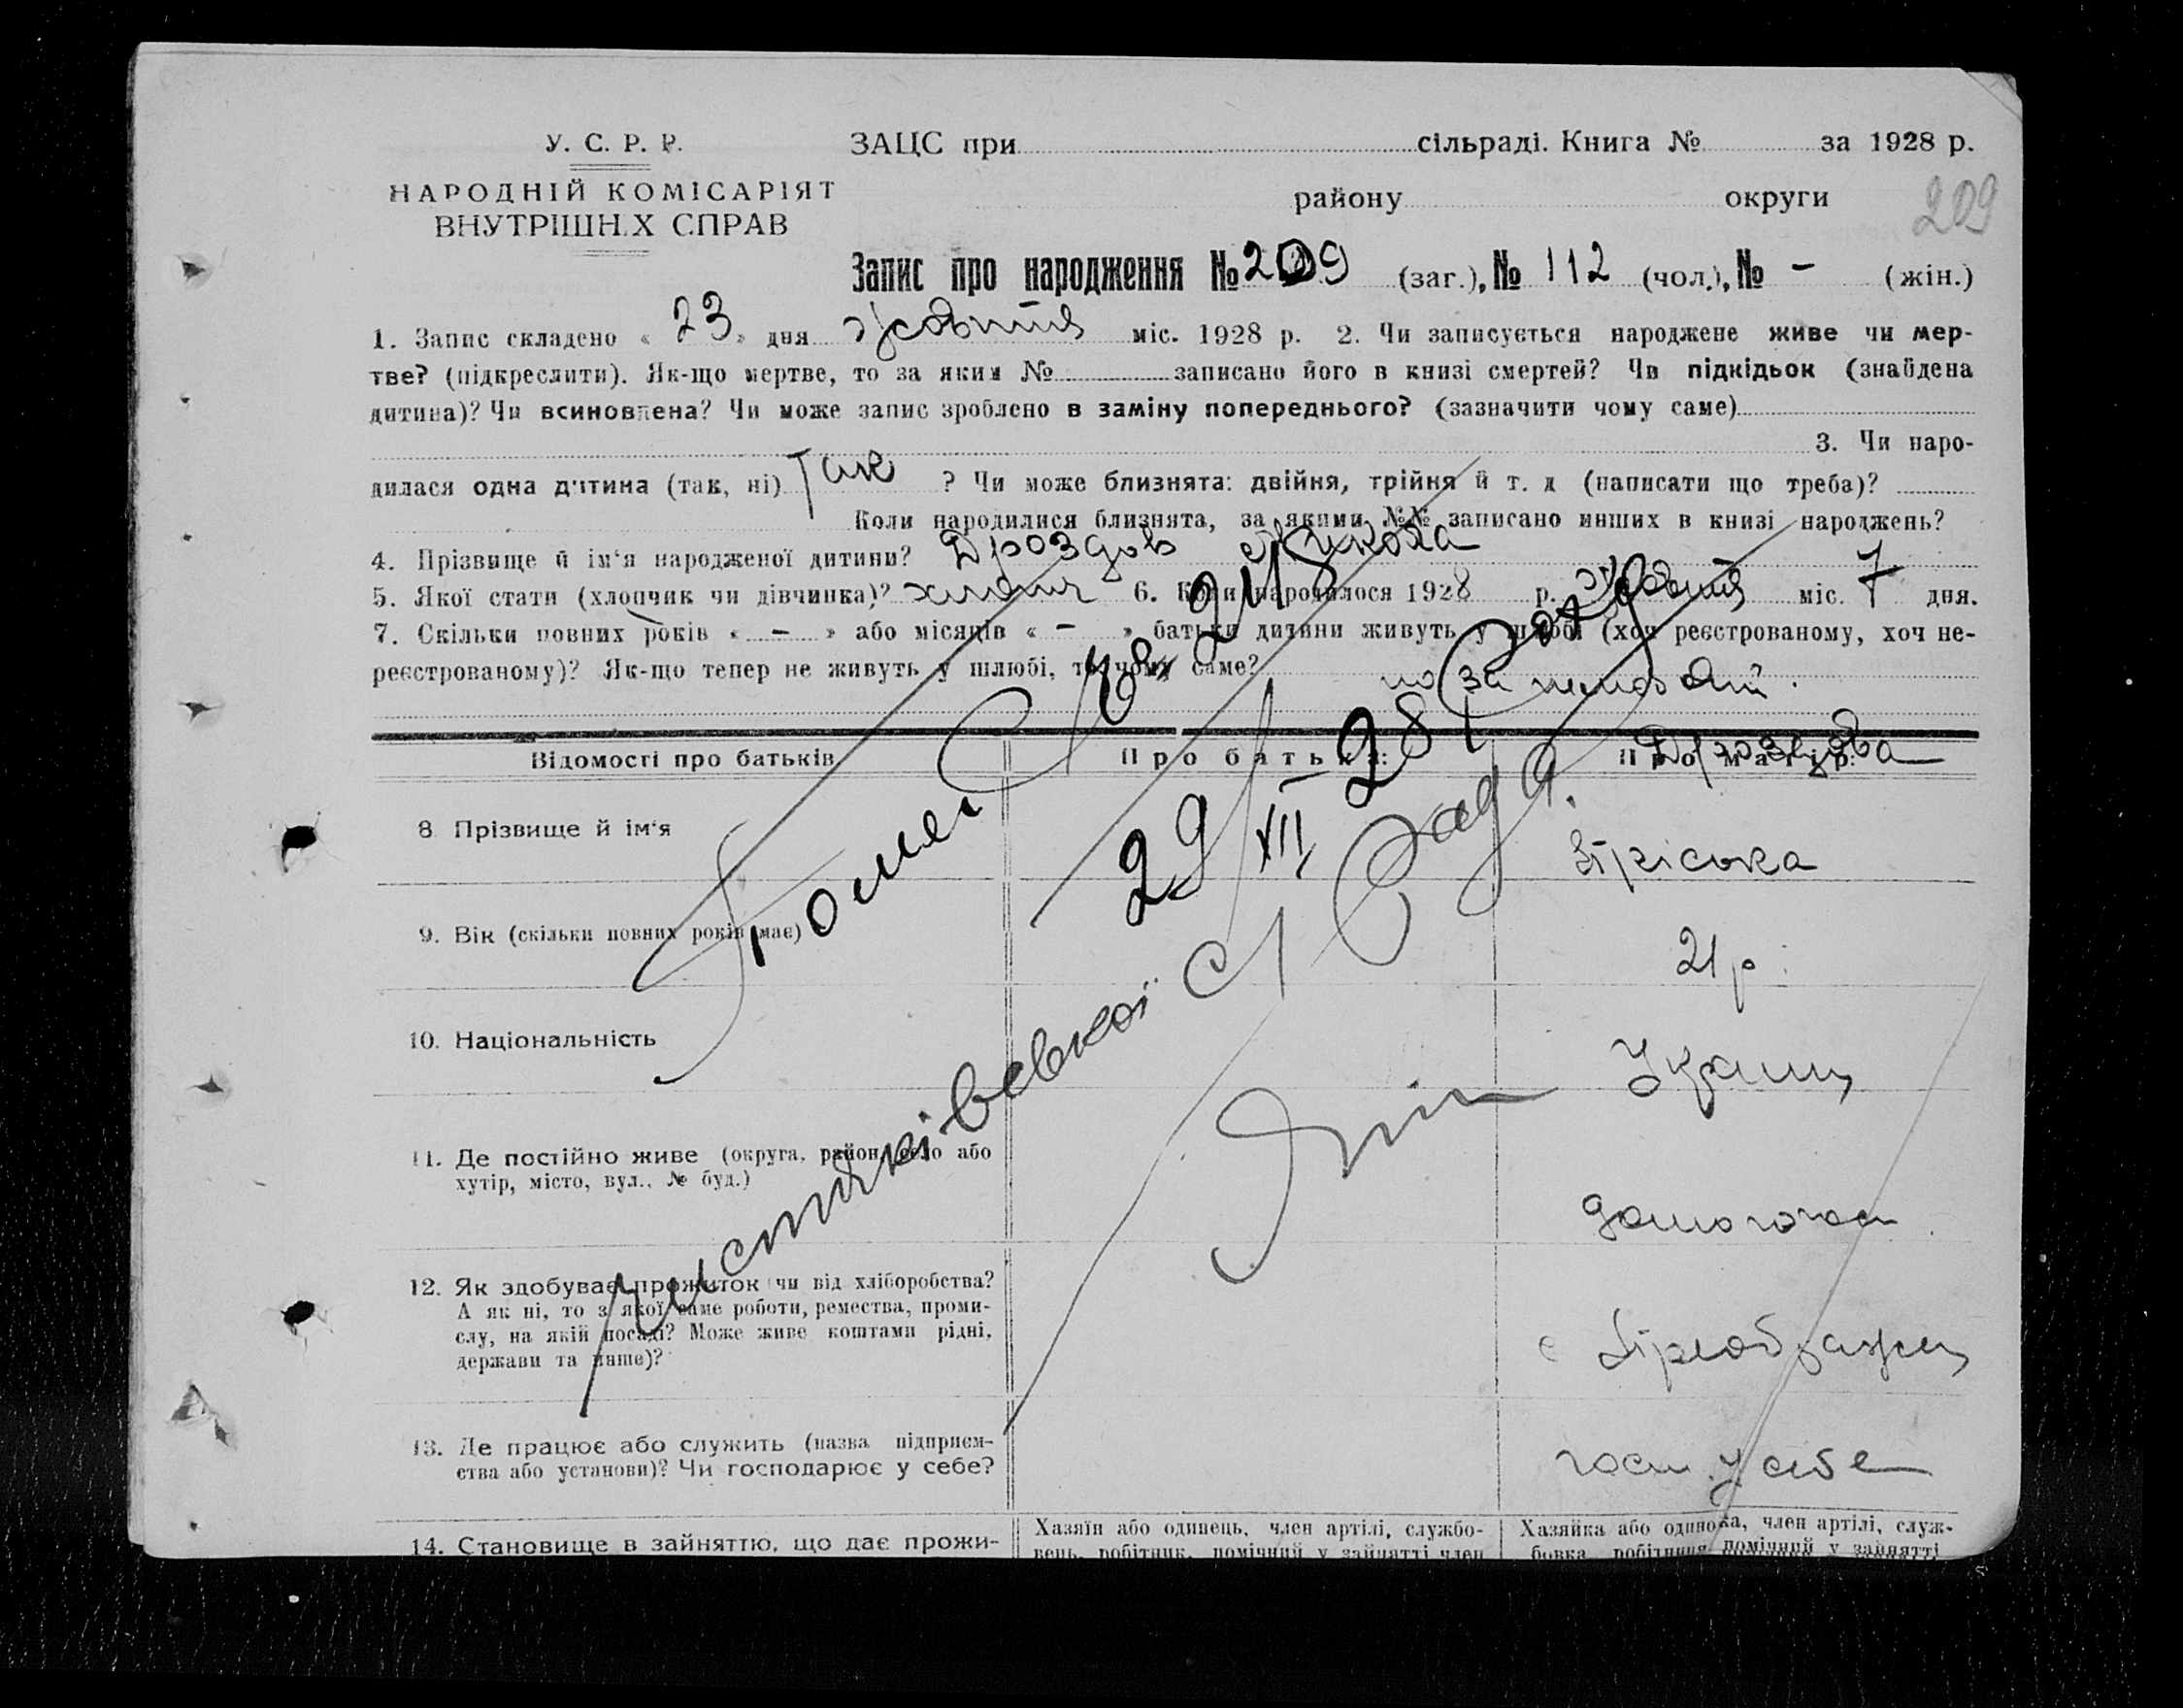 У. С. Р. Р. ЗАЦС при сільраді. Книга № за 1928 р.
НАРОДНІЙ КОМІСАРІЯТ району округи
ВНУТРІШН.Х СПРАВ 209
Запис про народження № 209 (заг.), № 112 (чол.), № - (жін.)
1. Запис складено « 23 » дня жовтня міс. 1928 р. 2. Чи записується народжене живе чи мер-
тве? (підкреслити). Як-що мертве, то за яким № записано його в книзі смертей? Чи підкідьок (знайдена
дитина)? Чи всиновлена? Чи може запис зроблено в заміну попереднього? (зазначити чому саме)
3. Чи наро-
дилася одна дитина (так, ні) Так ? Чи може близнята: двійня, трійня й т. д (написати що треба)?
Коли народилися близнята, за якими №№ записано инших в книзі народжень?
4. Прізвище й ім'я народженої дитини? Дроздов Микола
5. Якої стати (хлопчик чи дівчинка)? хлопч 6. Коли народилося 1928 р. жовтня міс. 7 дня.
7. Скільки повних років « - » або місяців « - » батьки дитини живуть у шлюбі (хоч реєстрованому, хоч не-
реєстрованому)? Як-що тепер не живуть у шлюбі, то чому саме?
Відомості про батьків Про батька: Про матір:
Дроздова
8. Прізвище й ім'я Пріська
9. Вік (скільки повних років має) 21 р.
10. Національність Україн
11. Де постійно живе (округа, район, село або
хутір, місто, вул., № буд.)
12. Як здобуває прожиток (чи від хліборобства?
А як ні, то з якої саме роботи, ремества, проми-
слу, на якій посаді? Може живе коштами рідні,
держави та инше)?
13. Де працює або служить (назва підприєм-
ства або установи)? Чи господарює у себе? госп у себе
14. Становище в зайняттю, що дає прожи- Хазяїн або одинець, член артілі, службо- Хазяйка або одинока, член артілі, служ-
вець, робітник, помічний у зайнятті член бовка, робітниця, помічний у зайнятті
29/XII 28